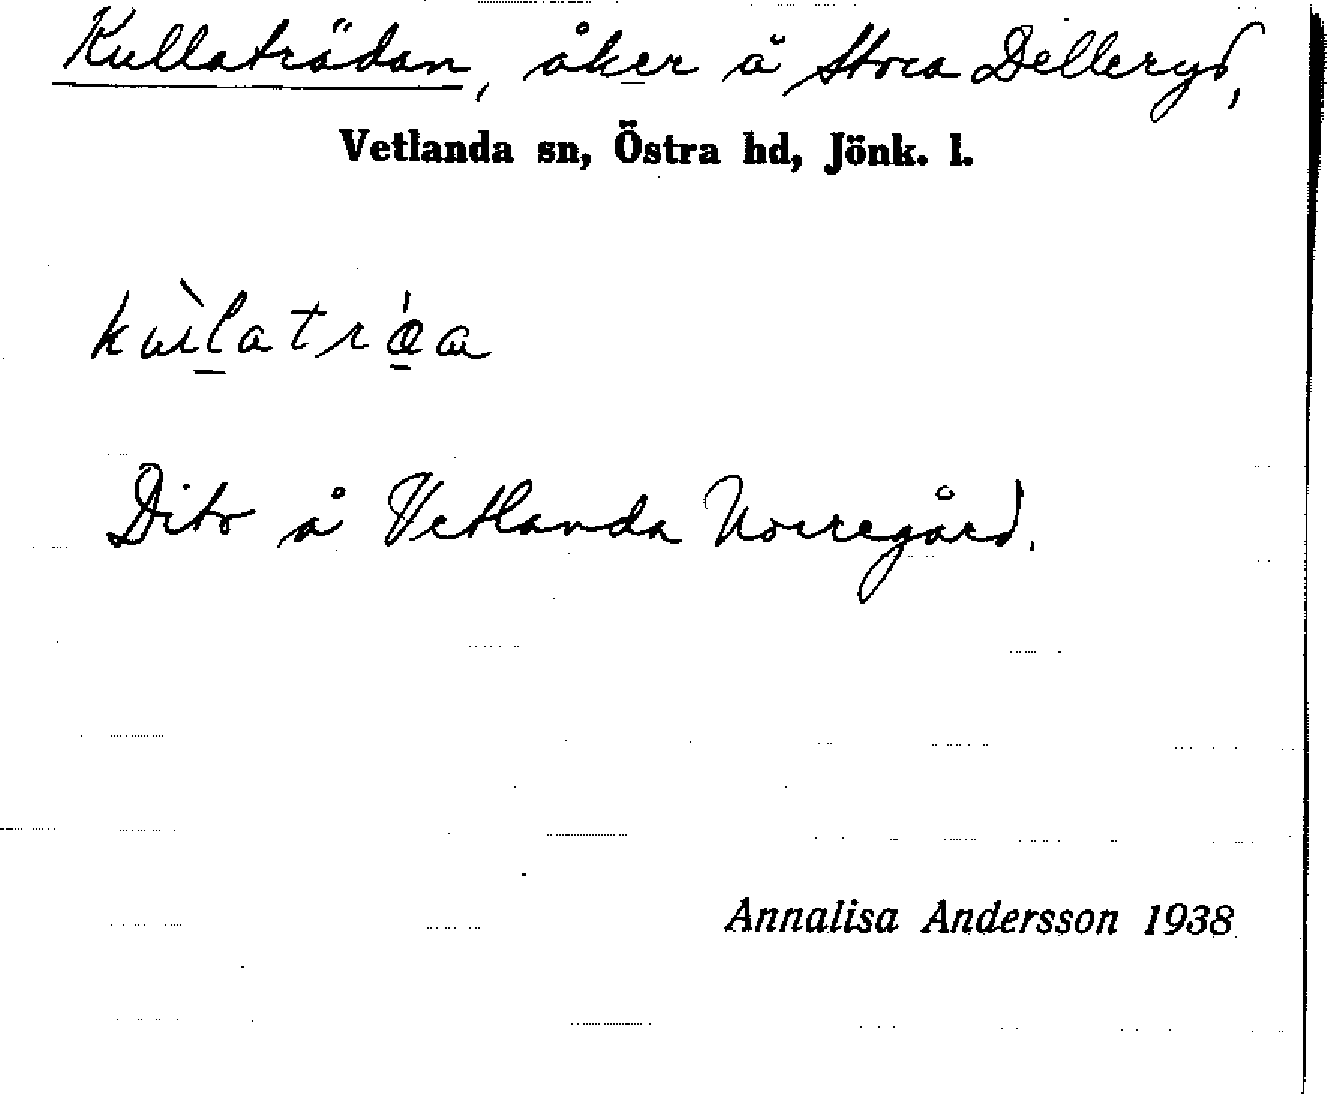 Kullaträdan, åker å Stora Delleryd,
Vetlanda sn, Östra hd, Jönk. l.
kùlatra̍a
Dito å Vetlanda Norregård.
Annalisa Andersson 1938